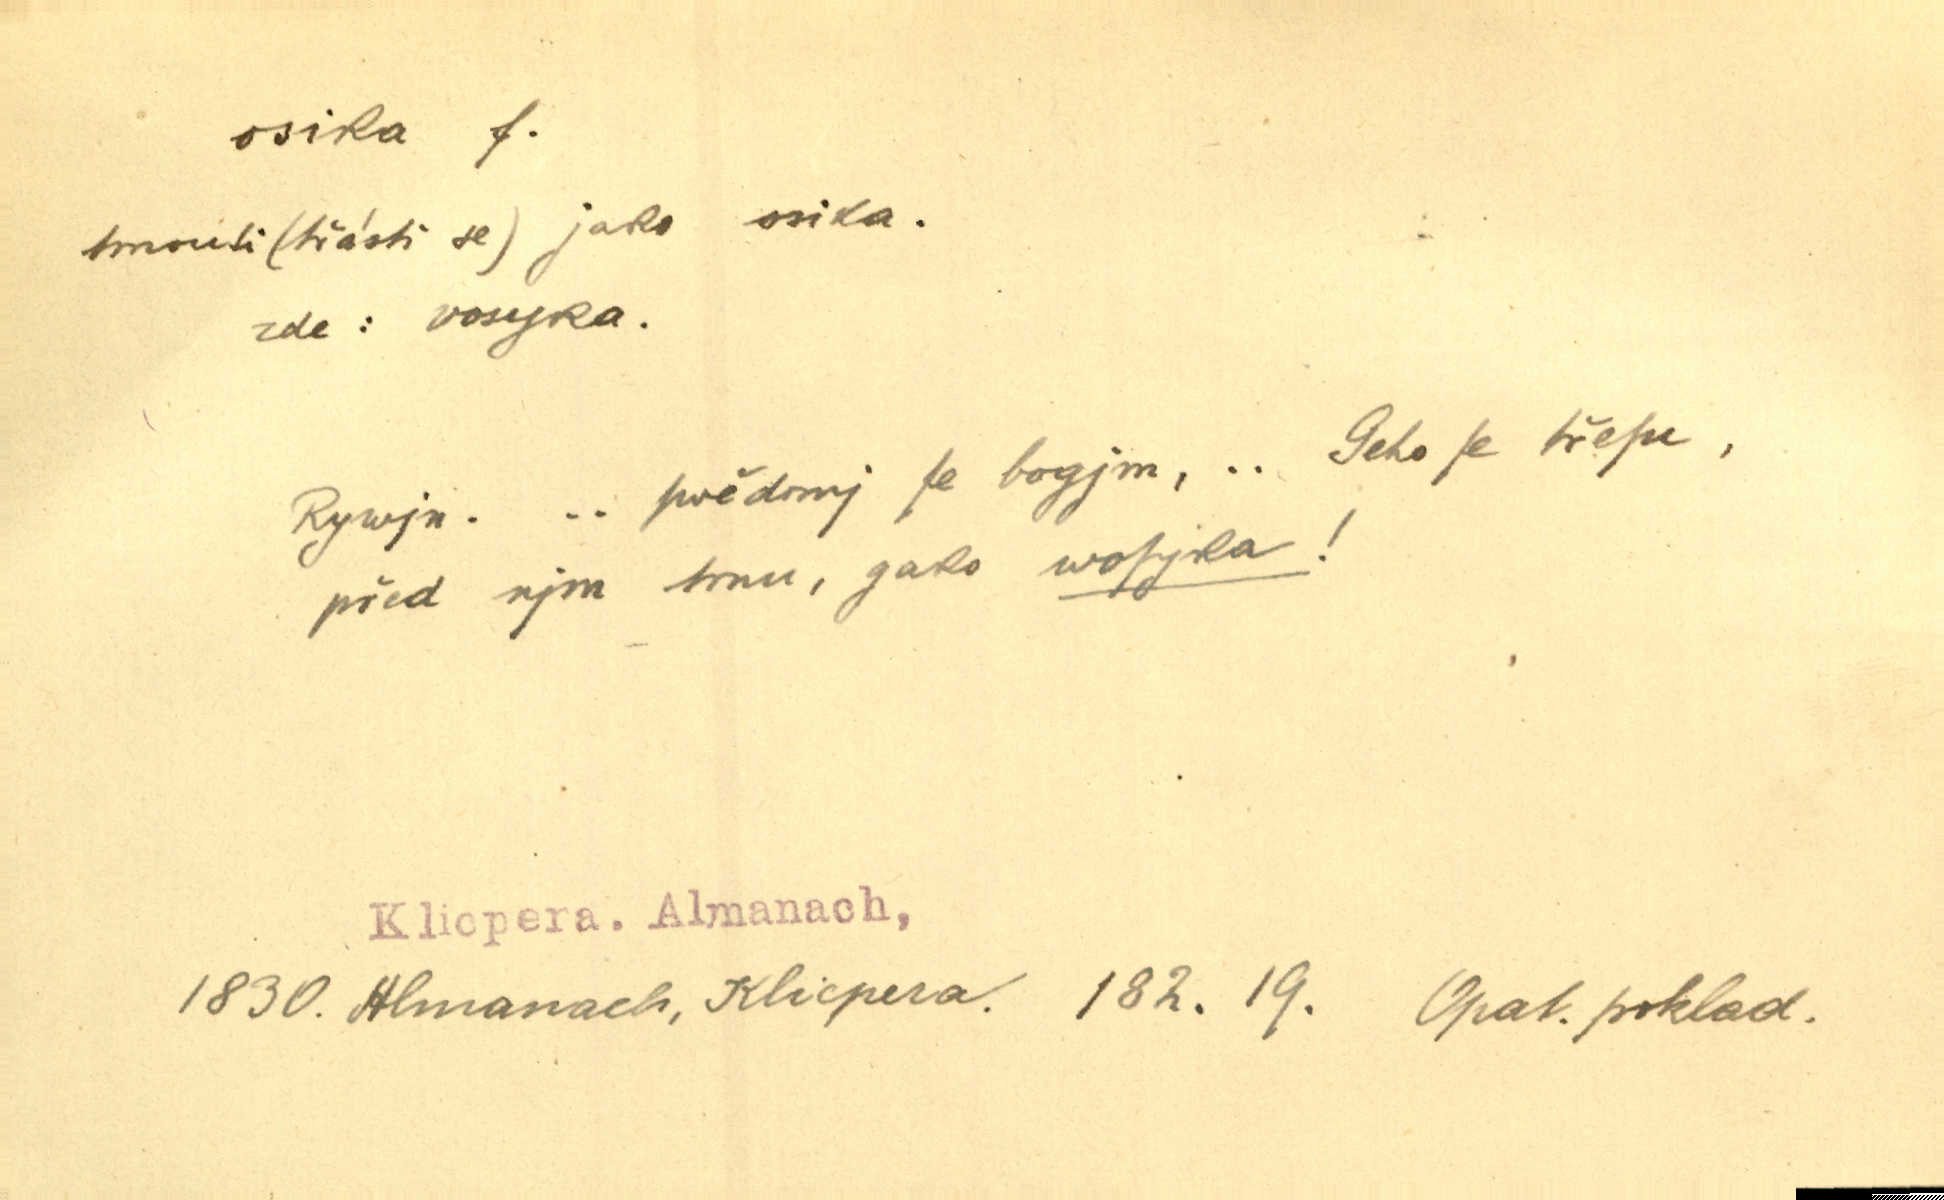 osika f.
trnouti (třásti se) jako osika.
zde : vosyka.
Rywjn. .. swědomj ſe bogjm, .. Geho ſe třeſu,
před njm trnu, gako woſyka !
Klicpera. Almanach,
1830. Almanach, Klicpera. 182. 19. Opat. poklad.